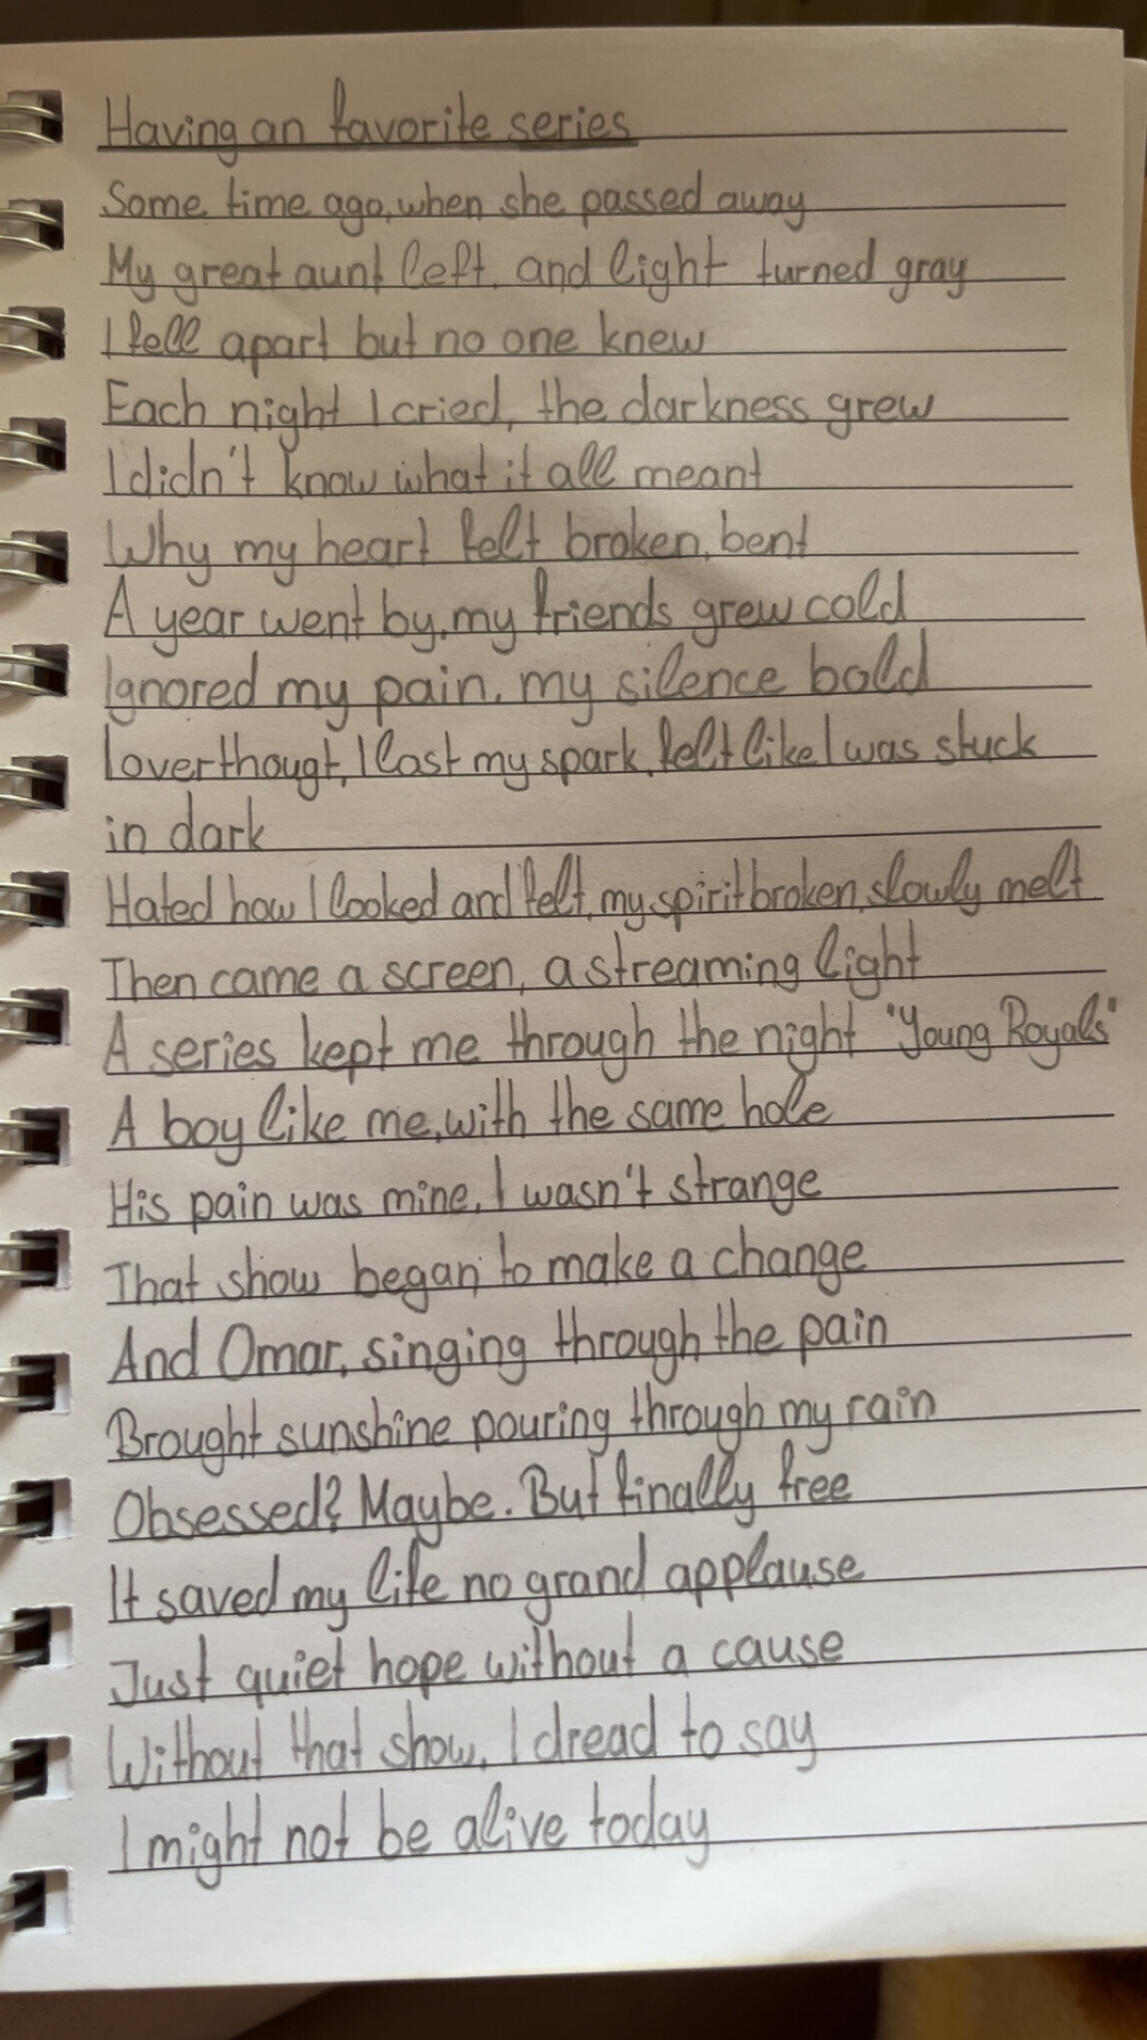 Having an favorite series
Some time ago, when she passed away
My great aunt left, and light turned gray
I fell apart but no one knew
Each night I cried, the darkness grew
I didn't know what it all meant
Why my heart felt broken, bent
A year went by, my friends grew cold
Ignored my pain, my silence bold
I overthougt, I lost my spark, felt like I was stuck
in dark
Hated how I looked and felt, my spirit broken, slowly melt
Then came a screen, a streaming light
A series kept me through the night "Young Royals"
A boy like me, with the same hole
His pain was mine, I wasn't strange
That show began to make a change
And Omar, singing through the pain
Brought sunshine pouring through my rain
Obsessed? Maybe. But finally free
It saved my life no grand applause
Just quiet hope without a cause
Without that show, I dread to say
I might not be alive today